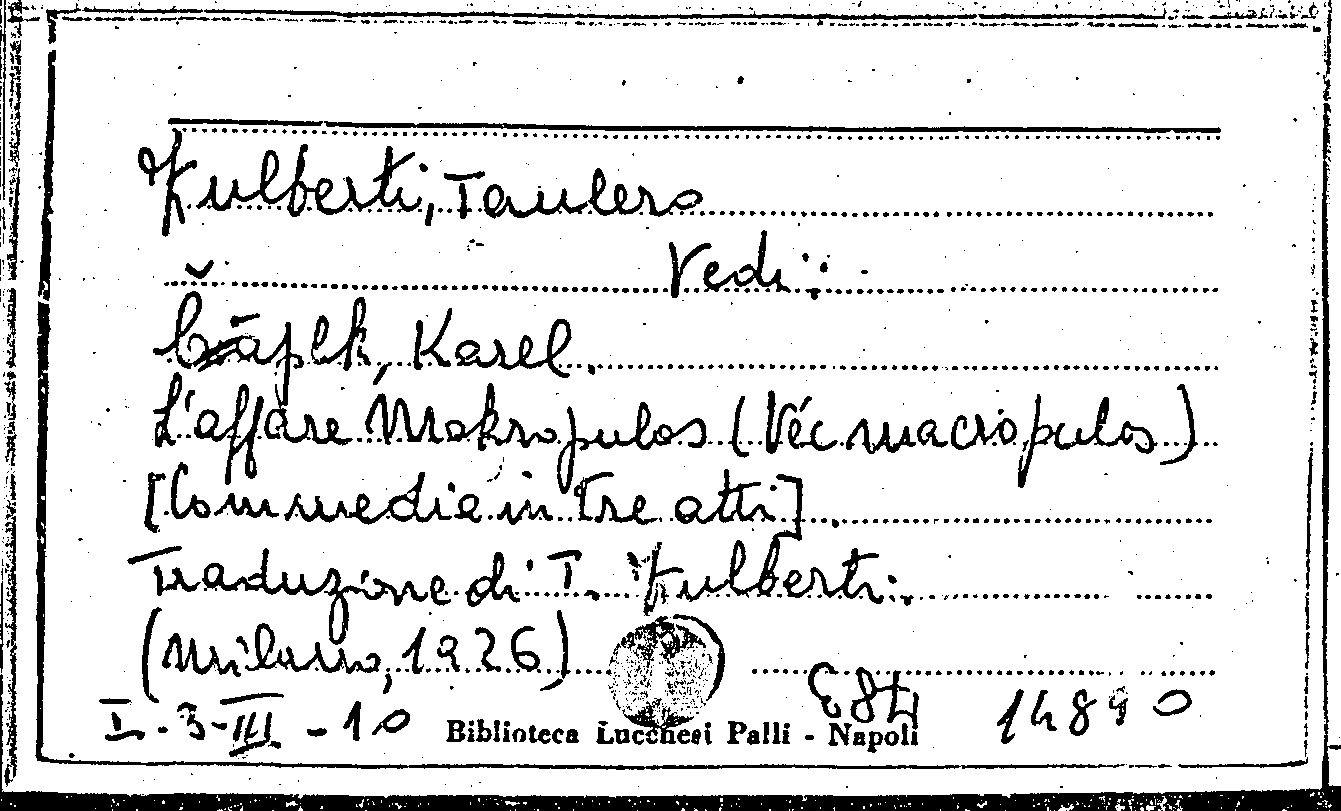 Zulberti, Taulero
Vedi:
Čāpek, Karel.
L'affare Makropulos (Véc macropulos)
[Commedia in tre atti].
Traduzione di T. Zulberti.
(Milano, 1926)
I-3-III-10 Biblioteca Lucchesi Palli - Napoli 14890